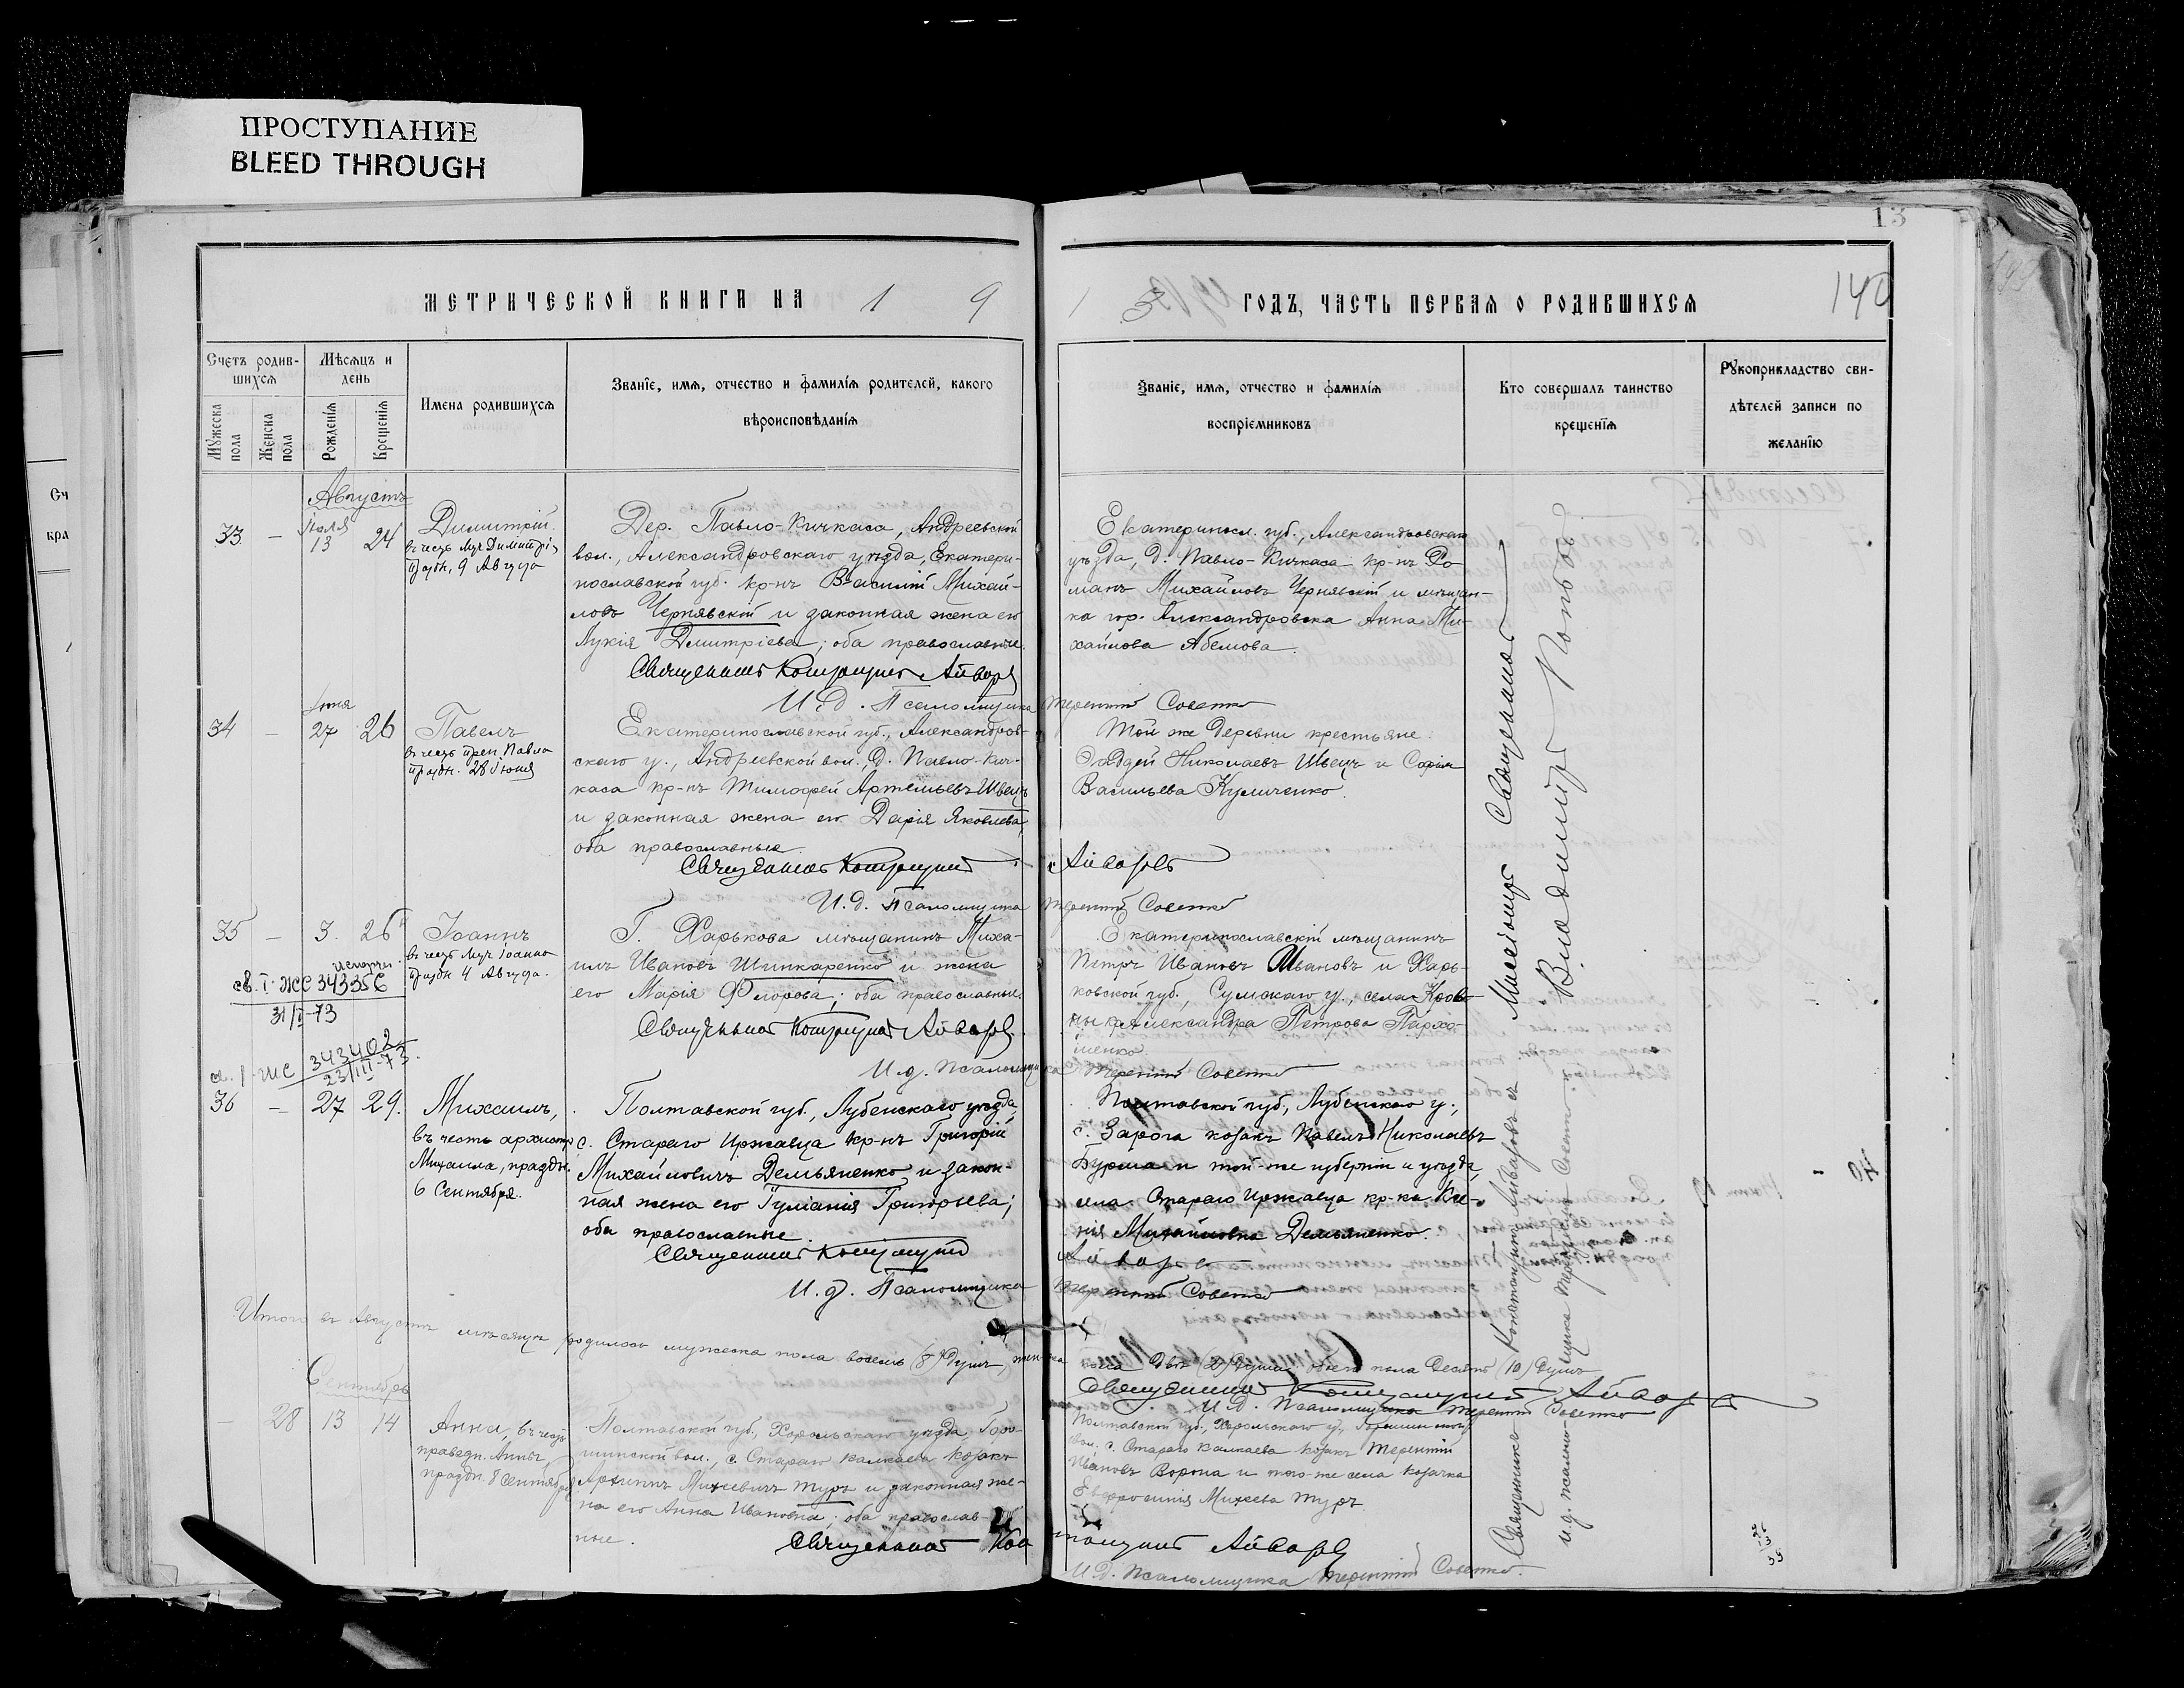 ПРОСТУПАНИЕ
BLEED THROUGH
13
140
МЕТРИЧЕСКОЙ КНИГИ НА 1 9
1 3 ГОДЪ, ЧАСТЬ ПЕРВАЯ О РОДИВШИХСЯ
Счетъ родив-
шихся
Мѣсяцъ и
день
Мужеска
пола
Женска
пола
Рожденія
Крещенія
Имена родившихся
Званіе, имя, отчество и фамилія родителей, какого
вѣроисповѣданія
Званіе, имя, отчество и фамилія
воспріемниковъ
Кто совершалъ таинство
крещенія
Рукоприкладство сви-
дѣтелей записи по
желанію
Сч
кра
Августъ
33 — Іюля 13 24
Димитрій
въ честь муч. Димитрія,
праздн. 9 Августа
Дер. Павло-Кичкаса, Андреевской
вол., Александровскаго уѣзда, Екатери-
нославской губ. кр-нъ Василій Михай-
ловъ Чернявскій и законная жена его
Лукія Димитріева; оба православные.
Священникъ Константинъ Айваровъ
И. д. Псаломщика Терентій Совенко
Екатериносл. губ., Александровскаго
уѣзда, д. Павло-Кичкаса кр-нъ Ро-
манъ Михайловъ Чернявскій и мѣщан-
ка гор. Александровска Анна Ми-
хайлова Абемова.
34 — Іюня 27 26
Павелъ
въ честь преп. Павла
праздн. 28 Іюня
Екатеринославской губ., Александров-
скаго у., Андреевской вол., д. Павло-Кич-
каса кр-нъ Тимофей Артемьевъ Швецъ
и законная жена его Дарія Яковлева,
оба православные.
Священникъ Константинъ Айваровъ
И. д. Псаломщика Терентій Совенко
Той же деревни крестьяне
Фаддей Николаевъ Швецъ и Софія
Васильева Куличенко.
35 — 3. 26
Іоаннъ
въ честь муч. Іоанна
праздн. 4 Августа.
св. I-ЖС 343356
31/I-73
Г. Харькова мѣщанинъ Миха-
илъ Ивановъ Шинкаренко и жена
его Марія Флорова; оба православные.
Священникъ Константинъ Айваровъ.
И. д. Псаломщика Терентій Совенко
Екатеринославскій мѣщанинъ
Петръ Ивановъ Ивановъ и Харь-
ковской губ., Сумскаго у., села
Александра Петрова Пархо-
менко.
343402
23/III-73.
36 — 27 29.
Михаилъ,
въ честь архистр.
Михаила, праздн.
6 Сентября.
Полтавской губ., Лубенскаго уѣзда,
с. Стараго Иржавца кр-нъ Григорій
Михайловичъ Демьяненко и закон-
ная жена его Іуліанія Григорьева;
оба православные.
Священникъ Константинъ Айваровъ
И. д. Псаломщика Терентій Совенко
Полтавской губ., Лубенскаго у.,
с. Зарога козакъ Павелъ Николаевъ
Бурма и той-же губерніи и уѣзда,
села Стараго Иржавца кр-ка Ксе-
нія Михайловна Демьяненко.
Итого въ Августѣ мѣсяцѣ родилось мужеска пола восемь (8) душъ, женска
пола двѣ (2) души, обоего пола десять (10) душъ
Священникъ Константинъ Айваровъ
И. д. Псаломщика Терентій Совенко
Сентябрь
— 28 13 14
Анна, въ честь
праведн. Анны,
праздн. 8 Сентября
Полтавской губ., Хорольскаго уѣзда, Горо-
шинской вол., с. Стараго Калкаева козакъ
Архиппъ Михеевичъ Туръ и законная же-
на его Анна Ивановна; оба православ-
ные.
Священникъ Константинъ Айваровъ
И. д. Псаломщика Терентій Совенко.
Полтавской губ., Хорольскаго у., Горошинской
вол., с. Стараго Калкаева козакъ Терентій
Ивановъ Ворона и того-же села козачка
Евфросинія Михеева Туръ.
Миссіонеръ Священникъ
Владиміръ Поповъ
Священникъ Константинъ Айваровъ съ
и.д. псаломщика Терентіемъ Совенко.
26
13
39